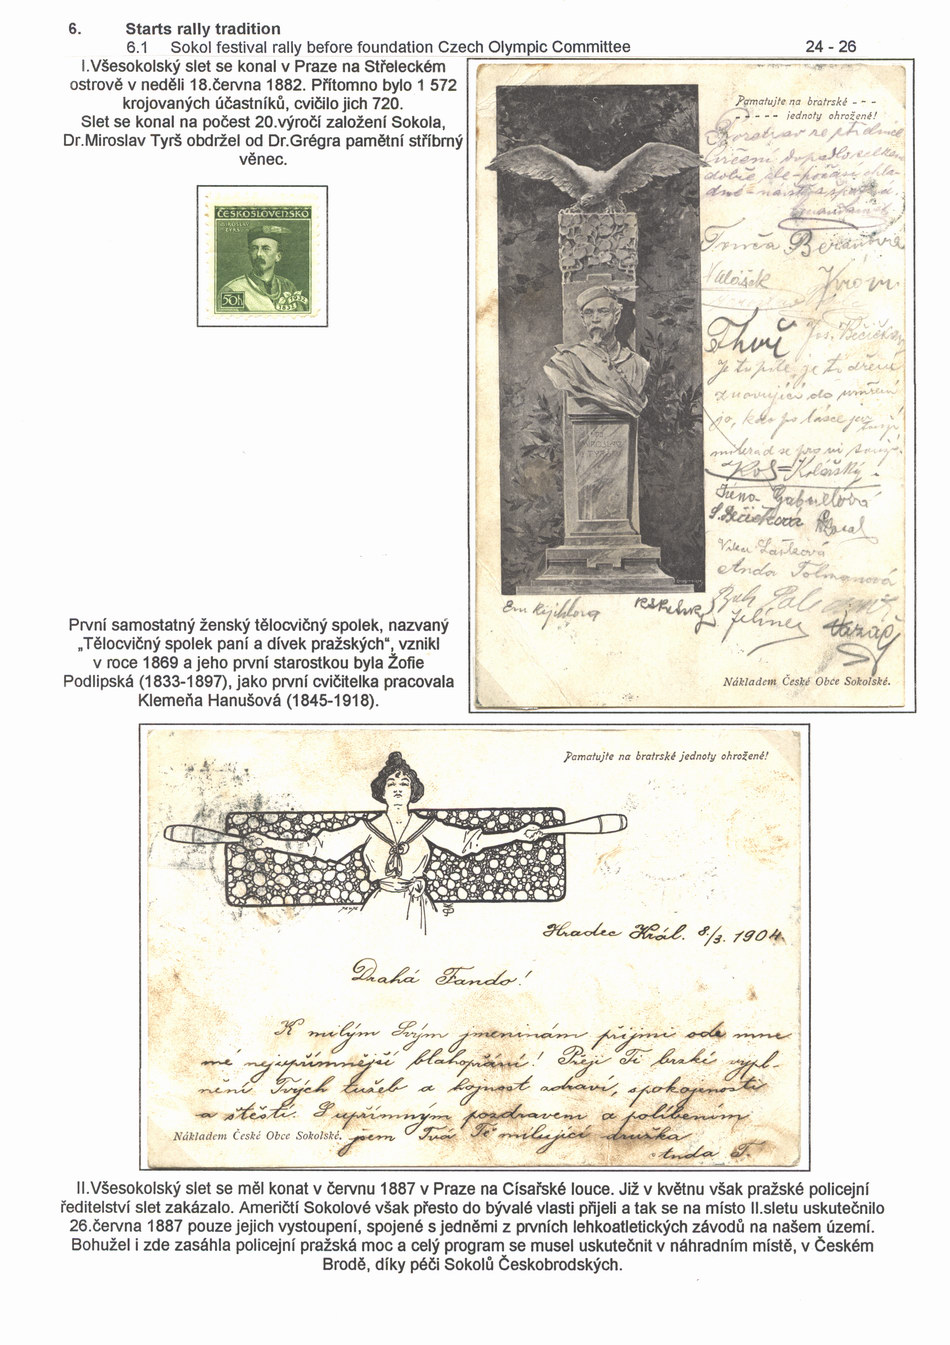 6. Starts rally tradition
6.1 Sokol festival rally before foundation Czech Olympic Committee 24 - 26
I.Všesokolský slet se konal v Praze na Střeleckém
ostrově v neděli 18.června 1882. Přítomno bylo 1 572
krojovaných účastníků, cvičilo jich 720.
Slet se konal na počest 20.výročí založení Sokola,
Dr.Miroslav Tyrš obdržel od Dr.Grégra pamětní stříbrný
věnec.
ČESKOSLOVENSKO
50h
Pamatujte na bratrské - - -
- - - - - jednoty ohrožené!
Valášek
Thoř
Kolářský
Gabrielová
Anda Tolmanová
Jelínek
Nákladem České Obce Sokolské.
První samostatný ženský tělocvičný spolek, nazvaný
„Tělocvičný spolek paní a dívek pražských“, vznikl
v roce 1869 a jeho první starostkou byla Žofie
Podlipská (1833-1897), jako první cvičitelka pracovala
Klemeňa Hanušová (1845-1918).
Pamatujte na bratrské jednoty ohrožené!
Hradec Král. 8./3. 1904.
Drahá Fando!
K milým Svým jmeninám přijmi ode mne
mé nejupřímnější blahopřání! Přeji Ti brzké vypl-
nění Tvých tužeb a hojnost zdraví, spokojenosti
a štěstí. S upřímným pozdravem a políbením
Nákladem České Obce Sokolské. jsem Tvá Tě milující družka
Anda T.
II.Všesokolský slet se měl konat v červnu 1887 v Praze na Císařské louce. Již v květnu však pražské policejní
ředitelství slet zakázalo. Američtí Sokolové však přesto do bývalé vlasti přijeli a tak se na místo II.sletu uskutečnilo
26.června 1887 pouze jejich vystoupení, spojené s jedněmi z prvních lehkoatletických závodů na našem území.
Bohužel i zde zasáhla policejní pražská moc a celý program se musel uskutečnit v náhradním místě, v Českém
Brodě, díky péči Sokolů Českobrodských.